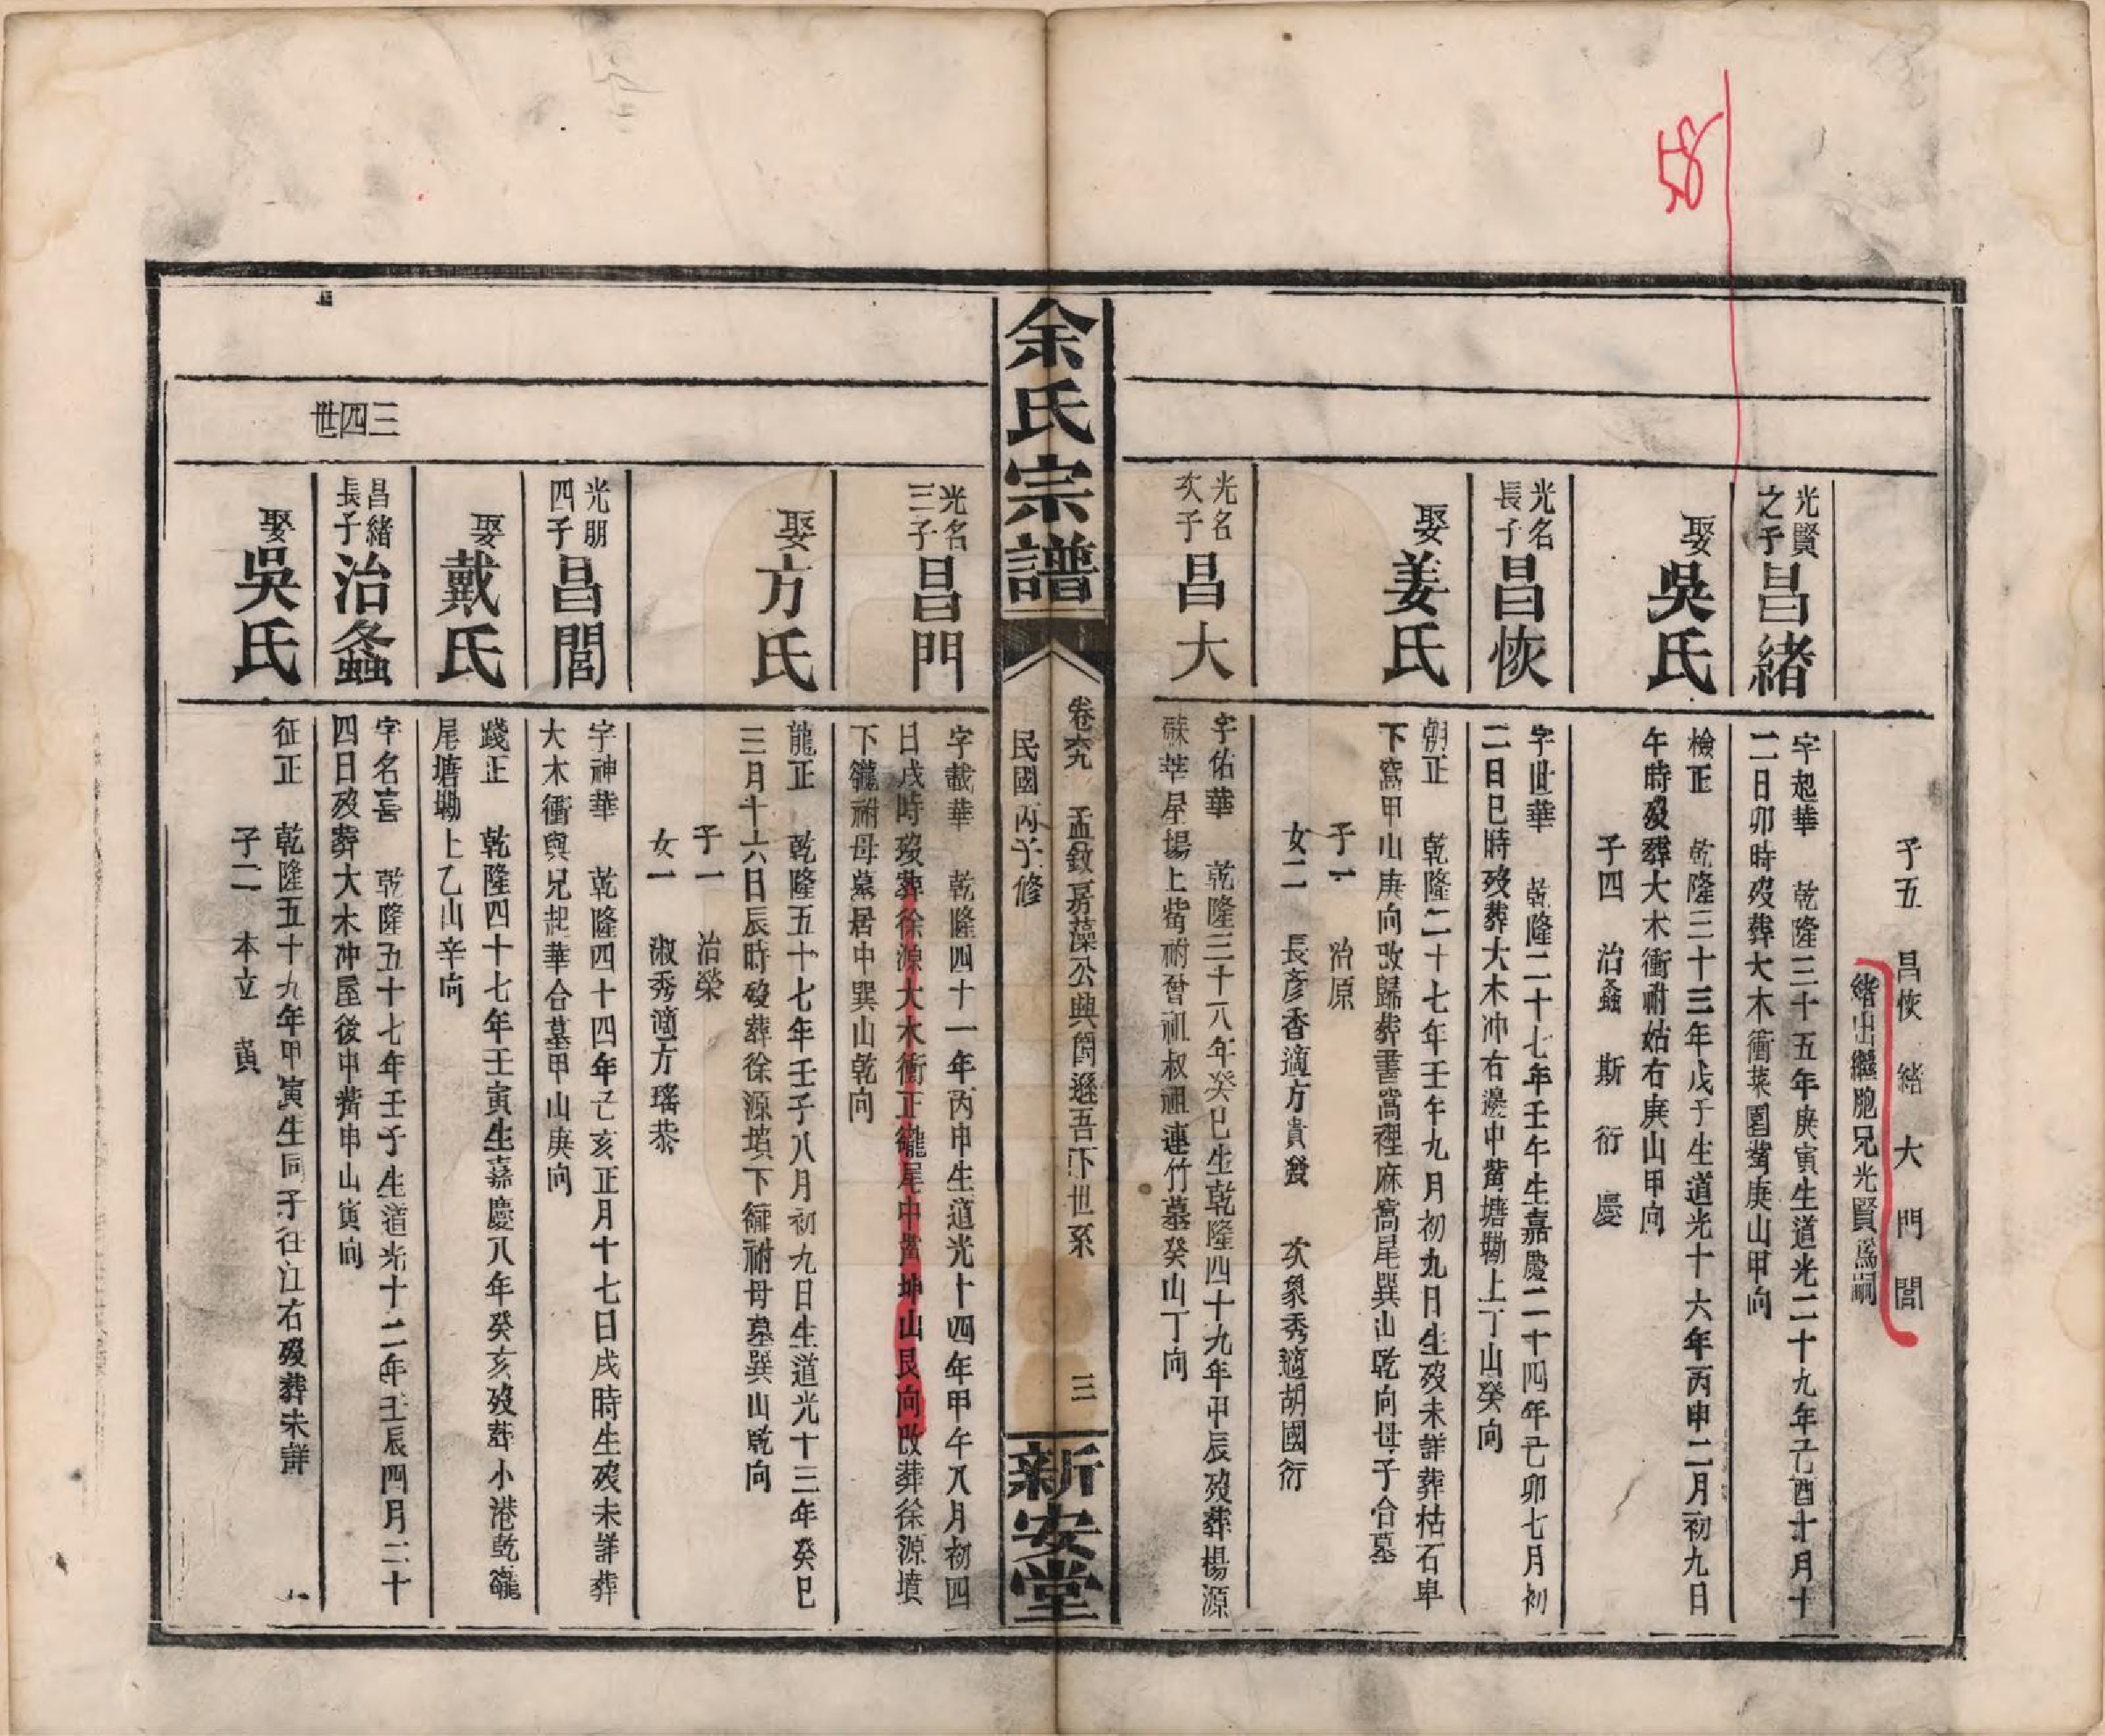 58
子五 昌恢 緒 大 門 閭
緒出繼胞兄光賢爲嗣
光賢之子 昌緒
字起華 乾隆三十五年庚寅生道光二十九年己酉十月十
二日卯時歿葬大木衝菜園塋庚山甲向
娶吳氏
檢正 乾隆三十三年戊子生道光十六年丙申二月初九日
午時歿葬大木衝祔姑右庚山甲向
子四 治螽 斯 衍 慶
光名長子 昌恢
字世華 乾隆二十七年壬午生嘉慶二十四年己卯七月初
二日巳時歿葬大木冲右邊中塋塘塝上丁山癸向
娶姜氏
朝正 乾隆二十七年壬午九月初九日生歿未詳葬枯石埠
下窩甲山庚向改歸葬書窩裡麻窩尾巽山乾向母子合墓
子一 治原
女二 長彥香適方貴發 次象秀適胡國衍
光名次子 昌大
字佑華 乾隆三十八年癸巳生乾隆四十九年甲辰歿葬楊源
祔曾祖叔祖連竹墓癸山丁向
余氏宗譜
卷六九 孟敘房藻公興簡遜吾下世系 三
民國丙子修
新安堂
光名三子 昌門
字載華 乾隆四十一年丙申生道光十四年甲午八月初四
日戌時歿葬徐源大木衝正龍尾中塋坤山艮向改葬徐源墳
下龍祔母墓居中巽山乾向
娶方氏
龍正 乾隆五十七年壬子八月初九日生道光十三年癸巳
三月十六日辰時歿葬徐源墳下龍祔母墓巽山乾向
子一 治榮
女一 淑秀適方瑤恭
光朋四子 昌閭
字神華 乾隆四十四年己亥正月十七日戌時生歿未詳葬
大木衝與兄起華合墓甲山庚向
娶戴氏
踐正 乾隆四十七年壬寅生嘉慶八年癸亥歿葬小港乾龍
尾塘塝上乙山辛向
三四世
昌緒長子 治螽
字名喜 乾隆五十七年壬子生道光十二年壬辰四月二十
四日歿葬大木冲屋後中塋申山寅向
娶吳氏
征正 乾隆五十九年甲寅生同子往江右歿葬未詳
子二 本立 黃